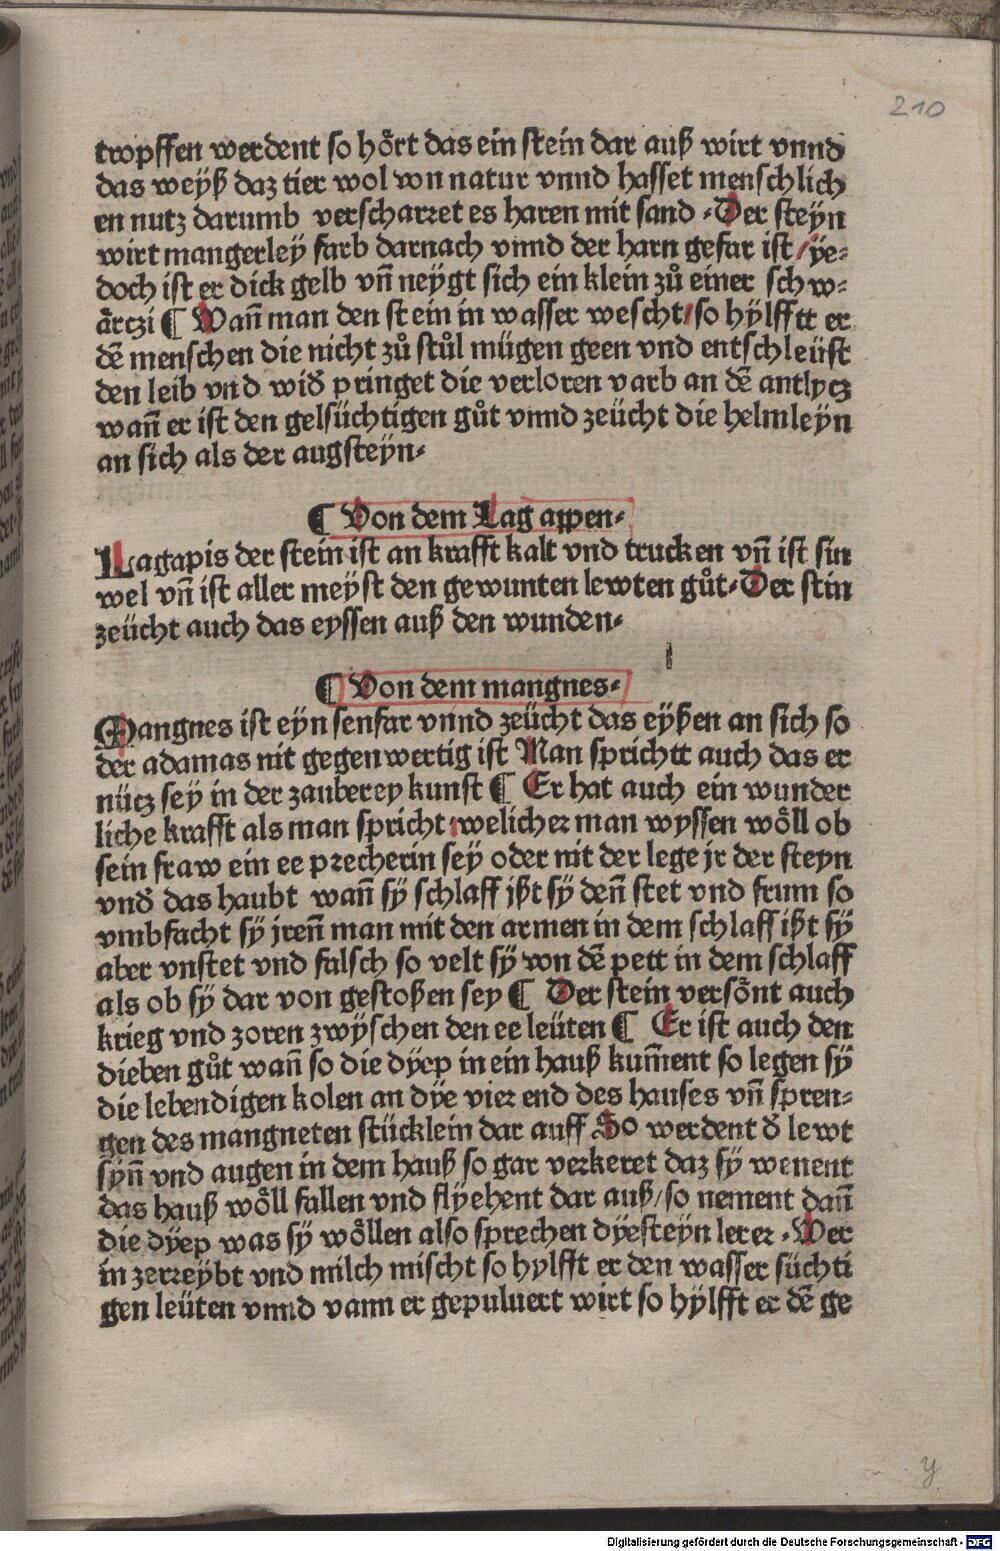 210
tropffen werdent so hoͤrt das ein stein dar auß wirt vnnd
das weyß daz tier wol von natur vnnd hasset menschlich
en nutz darumb verscharret es haren mit sand · Der steÿn
wirt mangerleÿ farb darnach vnnd der harn gefar ist / ÿe⸗
doch ist er dick gelb vñ neÿgt sich ein klein zuͦ einer schw⸗
aͤrczi ¶ Wañ man den stein in wasser wescht / so hÿlfftt er
dē menschen die nicht zuͦ stuͦl mügen geen vnd entschleüst
den leib vnd wiđ pringet die verloren varb an dē antlycz
wañ er ist den gelsüchtigen guͦt vnnd zeücht die helmleÿn
an sich als der augsteÿn·
¶ Von dem Lag appen·
Lagapis der stein ist an krafft kalt vnd trucken vñ ist sin
wel vñ ist aller meÿst den gewunten lewten guͦt· Der stin
zeücht auch das eyssen auß den wunden·
¶ Von dem mangnes·
Mangnes ist eÿn senfar vnnd zeücht das eÿßen an sich so
der adamas nit gegenwertig ist Man sprichtt auch das er
nücz sey in der zauberey kunst ¶ Er hat auch ein wunder
liche krafft als man spricht / welicher man wyssen woͤll ob
sein fraw ein ee precherin seÿ oder nit der lege jr der steyn
vnđ das haubt wañ sÿ schlaff jßt sÿ deñ stet vnd frum so
vmbfacht sÿ jreñ man mit den armen in dem schlaff ißt sÿ
aber vnstet vnd falsch so velt sÿ von dē pett in dem schlaff
als ob sÿ dar von gestoßen sey ¶ Der stein versoͤnt auch
krieg vnd zoren zwÿschen den ee leüten ¶ Er ist auch den
dieben guͦt wañ so die dÿep in ein hauß kum̃ent so legen sÿ
die lebendigen kolen an dÿe vier end des hauses vñ spren⸗
gen des mangneten stücklein dar auff So werdent đ lewt
sÿñ vnd augen in dem hauß so gar verkeret daz sÿ wenent
das hauß woͤll fallen vnd flÿehent dar auß / so nement dañ
die dÿep was sÿ woͤllen also sprechen dÿe steÿn lerer · Wer
in zerreÿbt vnd milch mischt so hylfft er den wasser süchti
gen leüten vnnd vann er gepuluert wirt so hÿlfft er dē ge
y
Digitalisierung gefördert durch die Deutsche Forschungsgemeinschaft - DFG